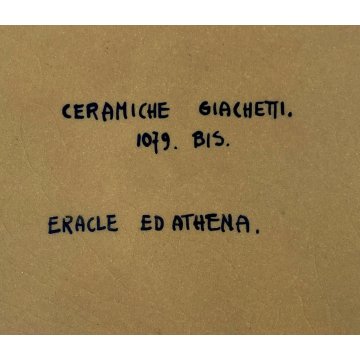 CERAMICHE GIACHETTI.
1079. BIS.
ERACLE ED ATHENA.